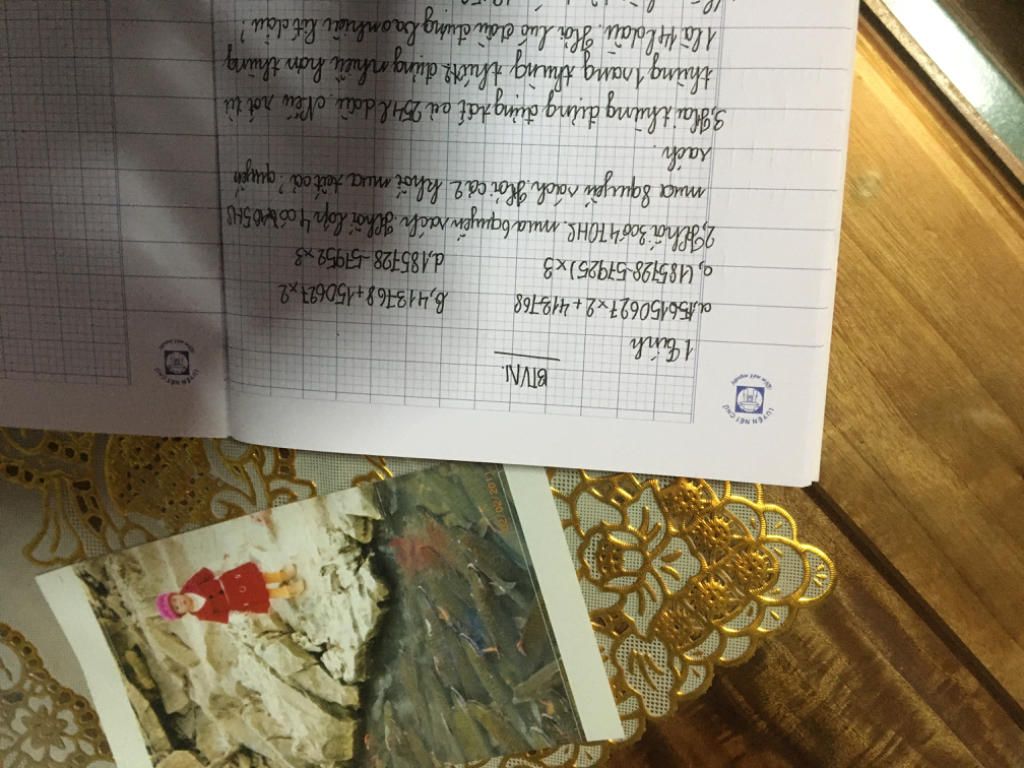 BTVN.
1 Tính
a, 150627x2 + 413768
B, 413768 + 150627x2
a, (185728-57925)x3
d, 185728-57952x3
2, Khối 3 có 470HS. mua 6 quyển sách. Khối lớp 4 có 405HS
mua 8 quyển sách. Hỏi cả 2 khối mua tất cả? quyển
sách.
3, Hai thùng đựng đựng tất cả 254l dầu. Nếu rót từ
thùng 1 sang thùng thứ 2 đựng nhiều hơn thùng
1 là 14l dầu. Hỏi lúc đầu đựng bao nhiêu lít dầu?
LUYỆN NÉT CHỮ
Rèn nết người
LUYỆN NÉT CHỮ
02/02/2011